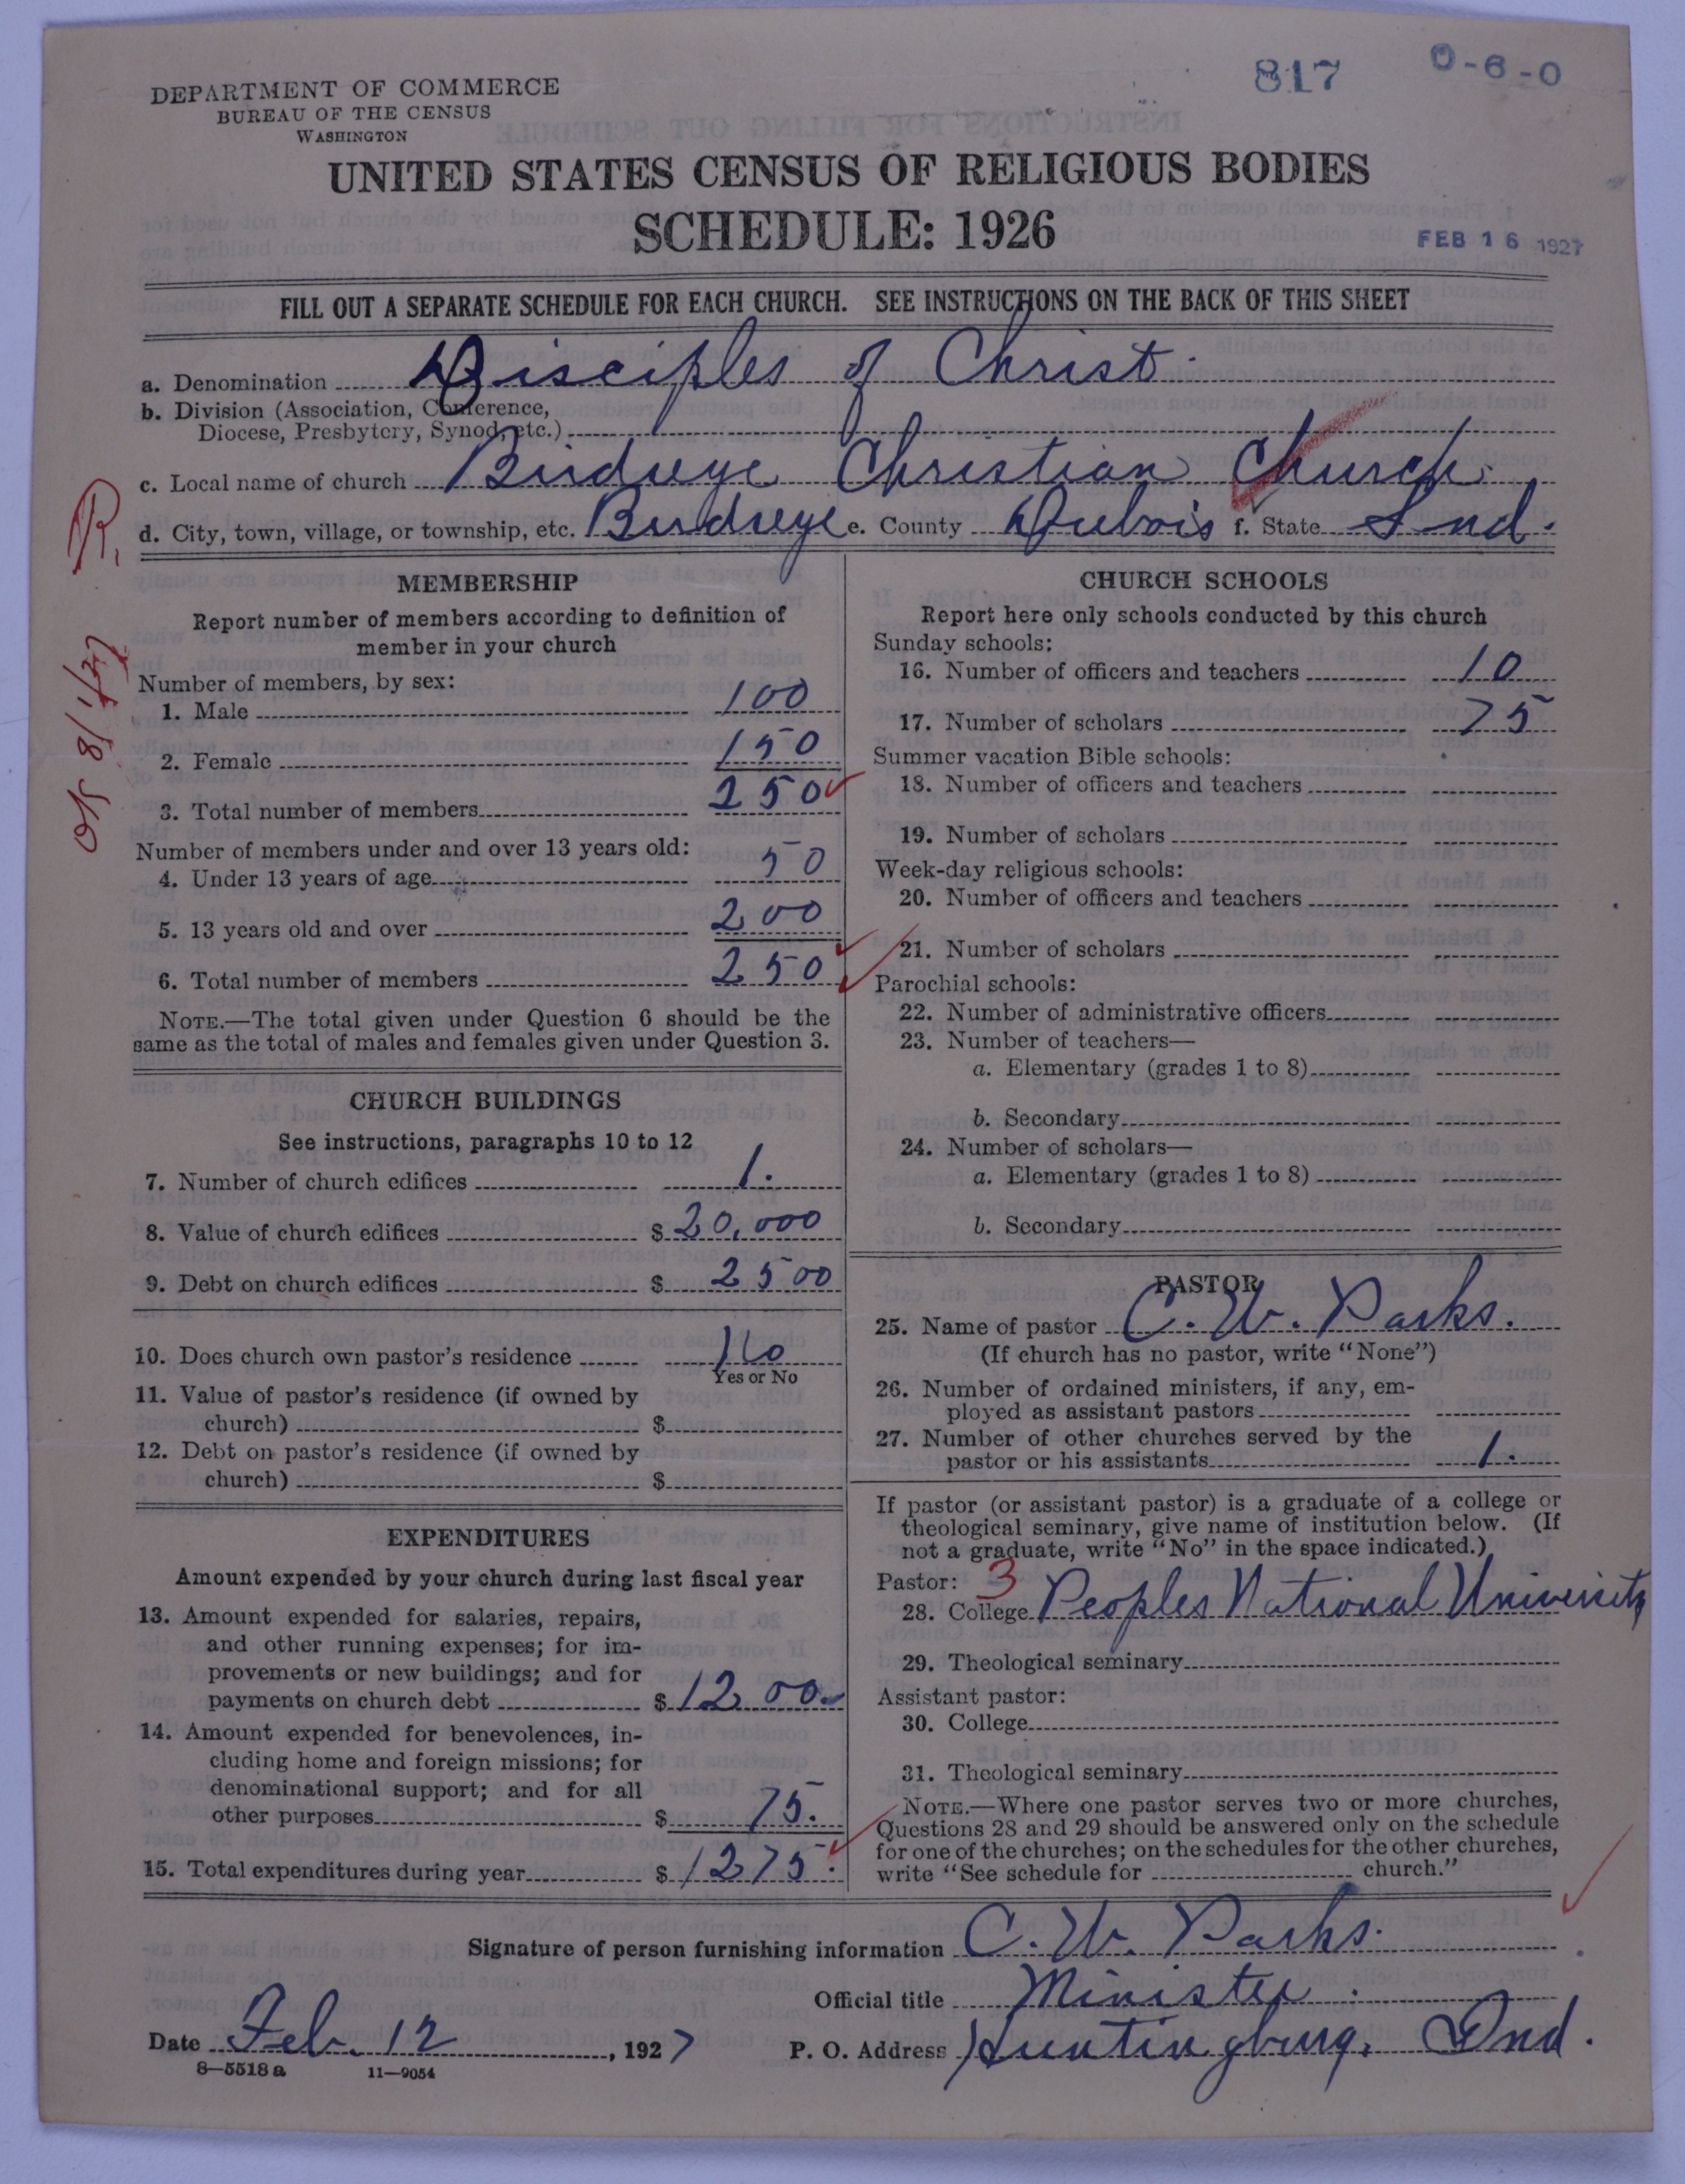 817
0-6-0
DEPARTMENT OF COMMERCE
BUREAU OF THE CENSUS
WASHINGTON
UNITED STATES CENSUS OF RELIGIOUS BODIES
SCHEDULE: 1926
FEB 16 1927
FILL OUT A SEPARATE SCHEDULE FOR EACH CHURCH. SEE INSTRUCTIONS ON THE BACK OF THIS SHEET
a. Denomination Disciples of Christ.
b. Division (Association, Conference,
Diocese, Presbytery, Synod, etc.)
c. Local name of church Birdseye Christian Church.
d. City, town, village, or township, etc. Birdseye e. County Dubois f. State Ind.
R.
8/1/27
MEMBERSHIP
Report number of members according to definition of
member in your church
Number of members, by sex:
1. Male 100
2. Female 150
3. Total number of members 250
Number of members under and over 13 years old:
4. Under 13 years of age 50
5. 13 years old and over 200
6. Total number of members 250
NOTE.—The total given under Question 6 should be the
same as the total of males and females given under Question 3.
CHURCH BUILDINGS
See instructions, paragraphs 10 to 12
7. Number of church edifices 1.
8. Value of church edifices $ 20,000
9. Debt on church edifices $ 2500
10. Does church own pastor's residence No
Yes or No
11. Value of pastor's residence (if owned by
church) $
12. Debt on pastor's residence (if owned by
church) $
EXPENDITURES
Amount expended by your church during last fiscal year
13. Amount expended for salaries, repairs,
and other running expenses; for im-
provements or new buildings; and for
payments on church debt $ 1200.
14. Amount expended for benevolences, in-
cluding home and foreign missions; for
denominational support; and for all
other purposes $ 75.
15. Total expenditures during year $ 1275.
CHURCH SCHOOLS
Report here only schools conducted by this church
Sunday schools:
16. Number of officers and teachers 10
17. Number of scholars 75
Summer vacation Bible schools:
18. Number of officers and teachers
19. Number of scholars
Week-day religious schools:
20. Number of officers and teachers
21. Number of scholars
Parochial schools:
22. Number of administrative officers
23. Number of teachers—
a. Elementary (grades 1 to 8)
b. Secondary
24. Number of scholars—
a. Elementary (grades 1 to 8)
b. Secondary
PASTOR
25. Name of pastor C. W. Parks.
(If church has no pastor, write "None")
26. Number of ordained ministers, if any, em-
ployed as assistant pastors
27. Number of other churches served by the
pastor or his assistants 1.
If pastor (or assistant pastor) is a graduate of a college or
theological seminary, give name of institution below. (If
not a graduate, write "No" in the space indicated.)
Pastor: 3
28. College Peoples National University
29. Theological seminary
Assistant pastor:
30. College
31. Theological seminary
NOTE.—Where one pastor serves two or more churches,
Questions 28 and 29 should be answered only on the schedule
for one of the churches; on the schedules for the other churches,
write "See schedule for church."
Signature of person furnishing information C. W. Parks.
Official title Minister.
Date Feb. 12, 1927 P. O. Address Huntingburg, Ind.
8—5518 a 11—9054